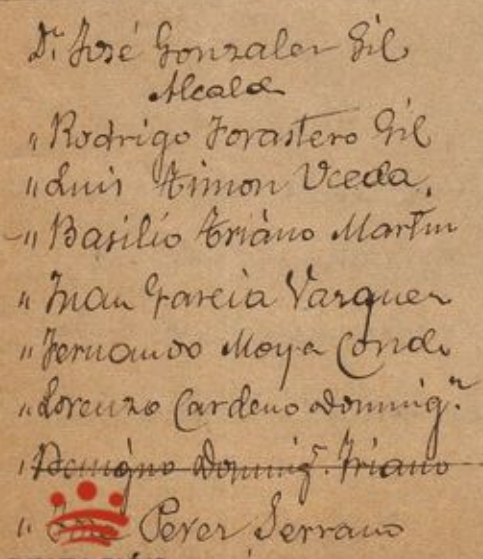 D.n José Gonzalez Gil
Alcalde
" Rodrigo Forastero Gil
" Luis Timon Uceda,
" Basilio Triano Martin
" Juan Garcia Vazquez
" Fernando Moya Conde
" Lorenzo Cardeno Doming.z
" Benigno Doming.z Triano
" José Perez Serrano